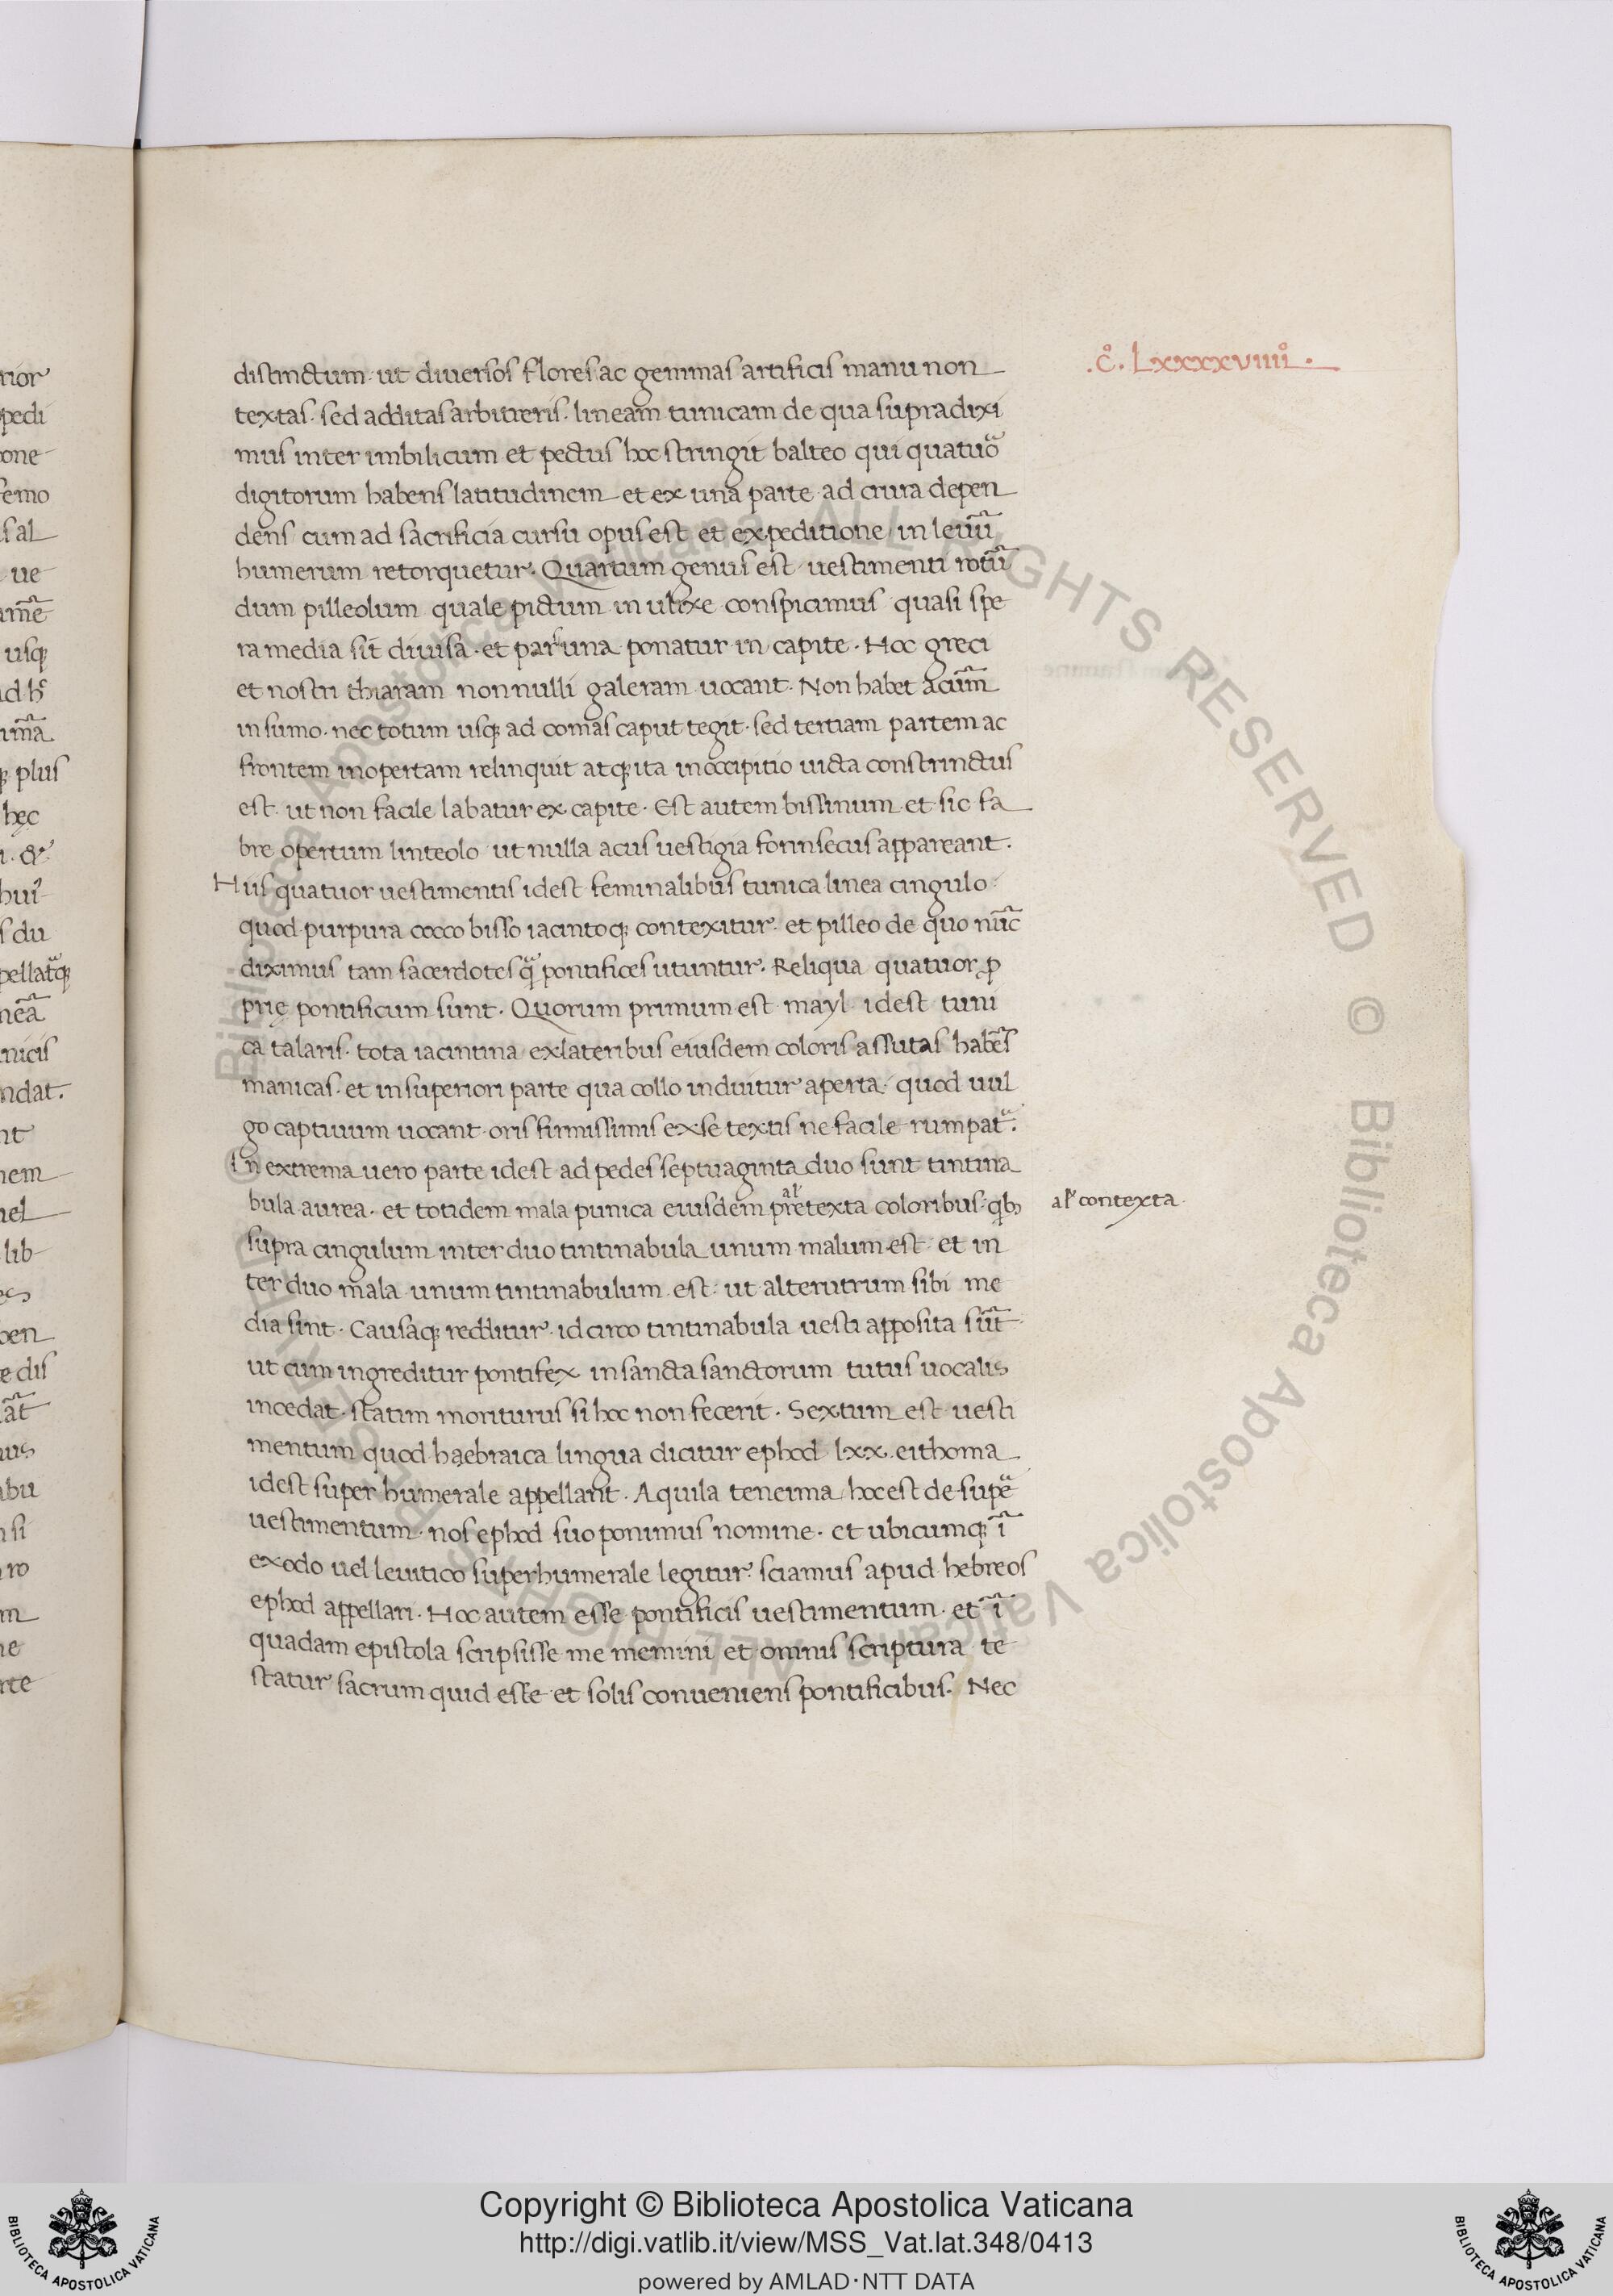 .c̊. Lxxxxviiii̊.
distinctum. ut diuersos flores ac gemmas artificis manu non
textas. sed additas arbitreris. lineam tunicam de qua supra dixi
mus inter imbilicum et pectus hoc stringit balteo qui quatuo᷑
digitorum habens latitudinem et ex una parte ad crura depen
dens cum ad sacrificia cursu opus est et expeditione in leuū
humerum retorquetur. Quartum genus est uestimenti rotū
dum pilleolum quale pictum in ulixe conspicimus quasi spe
ra media sit diuisa. et pars una ponatur in capite. Hoc greci
et nostri thiaram nonnulli galeram uocant. Non habet acum̄
in sumo. nec totum usq; ad comas caput tegit. sed tertiam partem ac
frontem inopertam relinquit atq; ita in occipitio uicta constrinctus
est. ut non facile labatur ex capite. Est autem bissinum et sic fa
bre opertum linteolo ut nulla acus uestigia forinsecus appareant.
Hiis quatuor uestimentis idest feminalibus tunica linea cingulo
quod purpura cocco bisso iacintoq; contexitur. et pilleo de quo nūc
diximus tam sacerdotes q̃ pontifices utuntur. Reliqua quatuor ꝓ
prię pontificum sunt. Quorum primum est mayl idest tuni
ca talaris. tota iacintina ex lateribus eiusdem coloris assutas habēs
manicas. et in superiori parte qua collo induitur aperta. quod uul
go captiuum uocant oris firmissimis ex se textis ne facile rumpat᷑.
In extrema uero parte idest ad pedes septuaginta duo sunt tintina
bula aurea. et totidem mala punica eiusdem pretexta coloribus. qb;
al̓
al̓ contexta
supra cingulum inter duo tintinabula unum malum est et in
ter duo mala unum tintinabulum est. ut alterutrum sibi me
dia sint. Causaq; redditur. idcirco tintinabula uesti apposita sūt
ut cum ingreditur pontifex in sancta sanctorum tutus uocalis
incedat. statim moriturus si hoc non fecerit. Sextum est uesti
mentum quod haebraica lingua dicitur ephod lxx. eithoma
idest super humerale appellant. Aquila teneima hoc est de supe᷑
uestimentum. nos ephod suo ponimus nomine. et ubicumq; ī
exodo uel leuitico superhumerale legitur. sciamus apud hebreos
ephod appellari. Hoc autem esse pontificis uestimentum. et ī
quadam epistola scripsisse me memini et omnis scriptura te
statur sacrum quid esse et solis conueniens pontificibus. Nec
rior
pedi
one
femo
sal
ue
amē
usq;
ad h̓
imā
q; plus
hęc
s du
pellat᷑q;
neā
nicis
ndat.
nt
nem
uel
lib
pen
e dis
āt
us
abu
si
ro
m
ne
rte
© Biblioteca Apostolica Vaticana ALL RIGHTS RESERVED
BIBLIOTECA APOSTOLICA VATICANA
Copyright © Biblioteca Apostolica Vaticana
http://digi.vatlib.it/view/MSS_Vat.lat.348/0413
powered by AMLAD·NTT DATA
BIBLIOTECA APOSTOLICA VATICANA